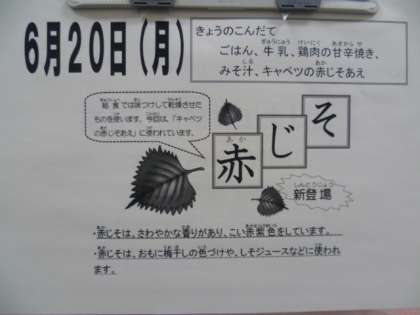 6月20日（月）
きょうのこんだて
ごはん、牛乳、鶏肉の甘辛焼き、
みそ汁、キャベツの赤じそあえ
給食では味つけして乾燥させた
ものを使います。今回は、「キャベツ
の赤じそあえ」に使われています。
赤じそ
新登場
・赤じそは、さわやかな香りがあり、こい赤紫色をしています。
・赤じそは、おもに梅干しの色づけや、しそジュースなどに使われ
ます。